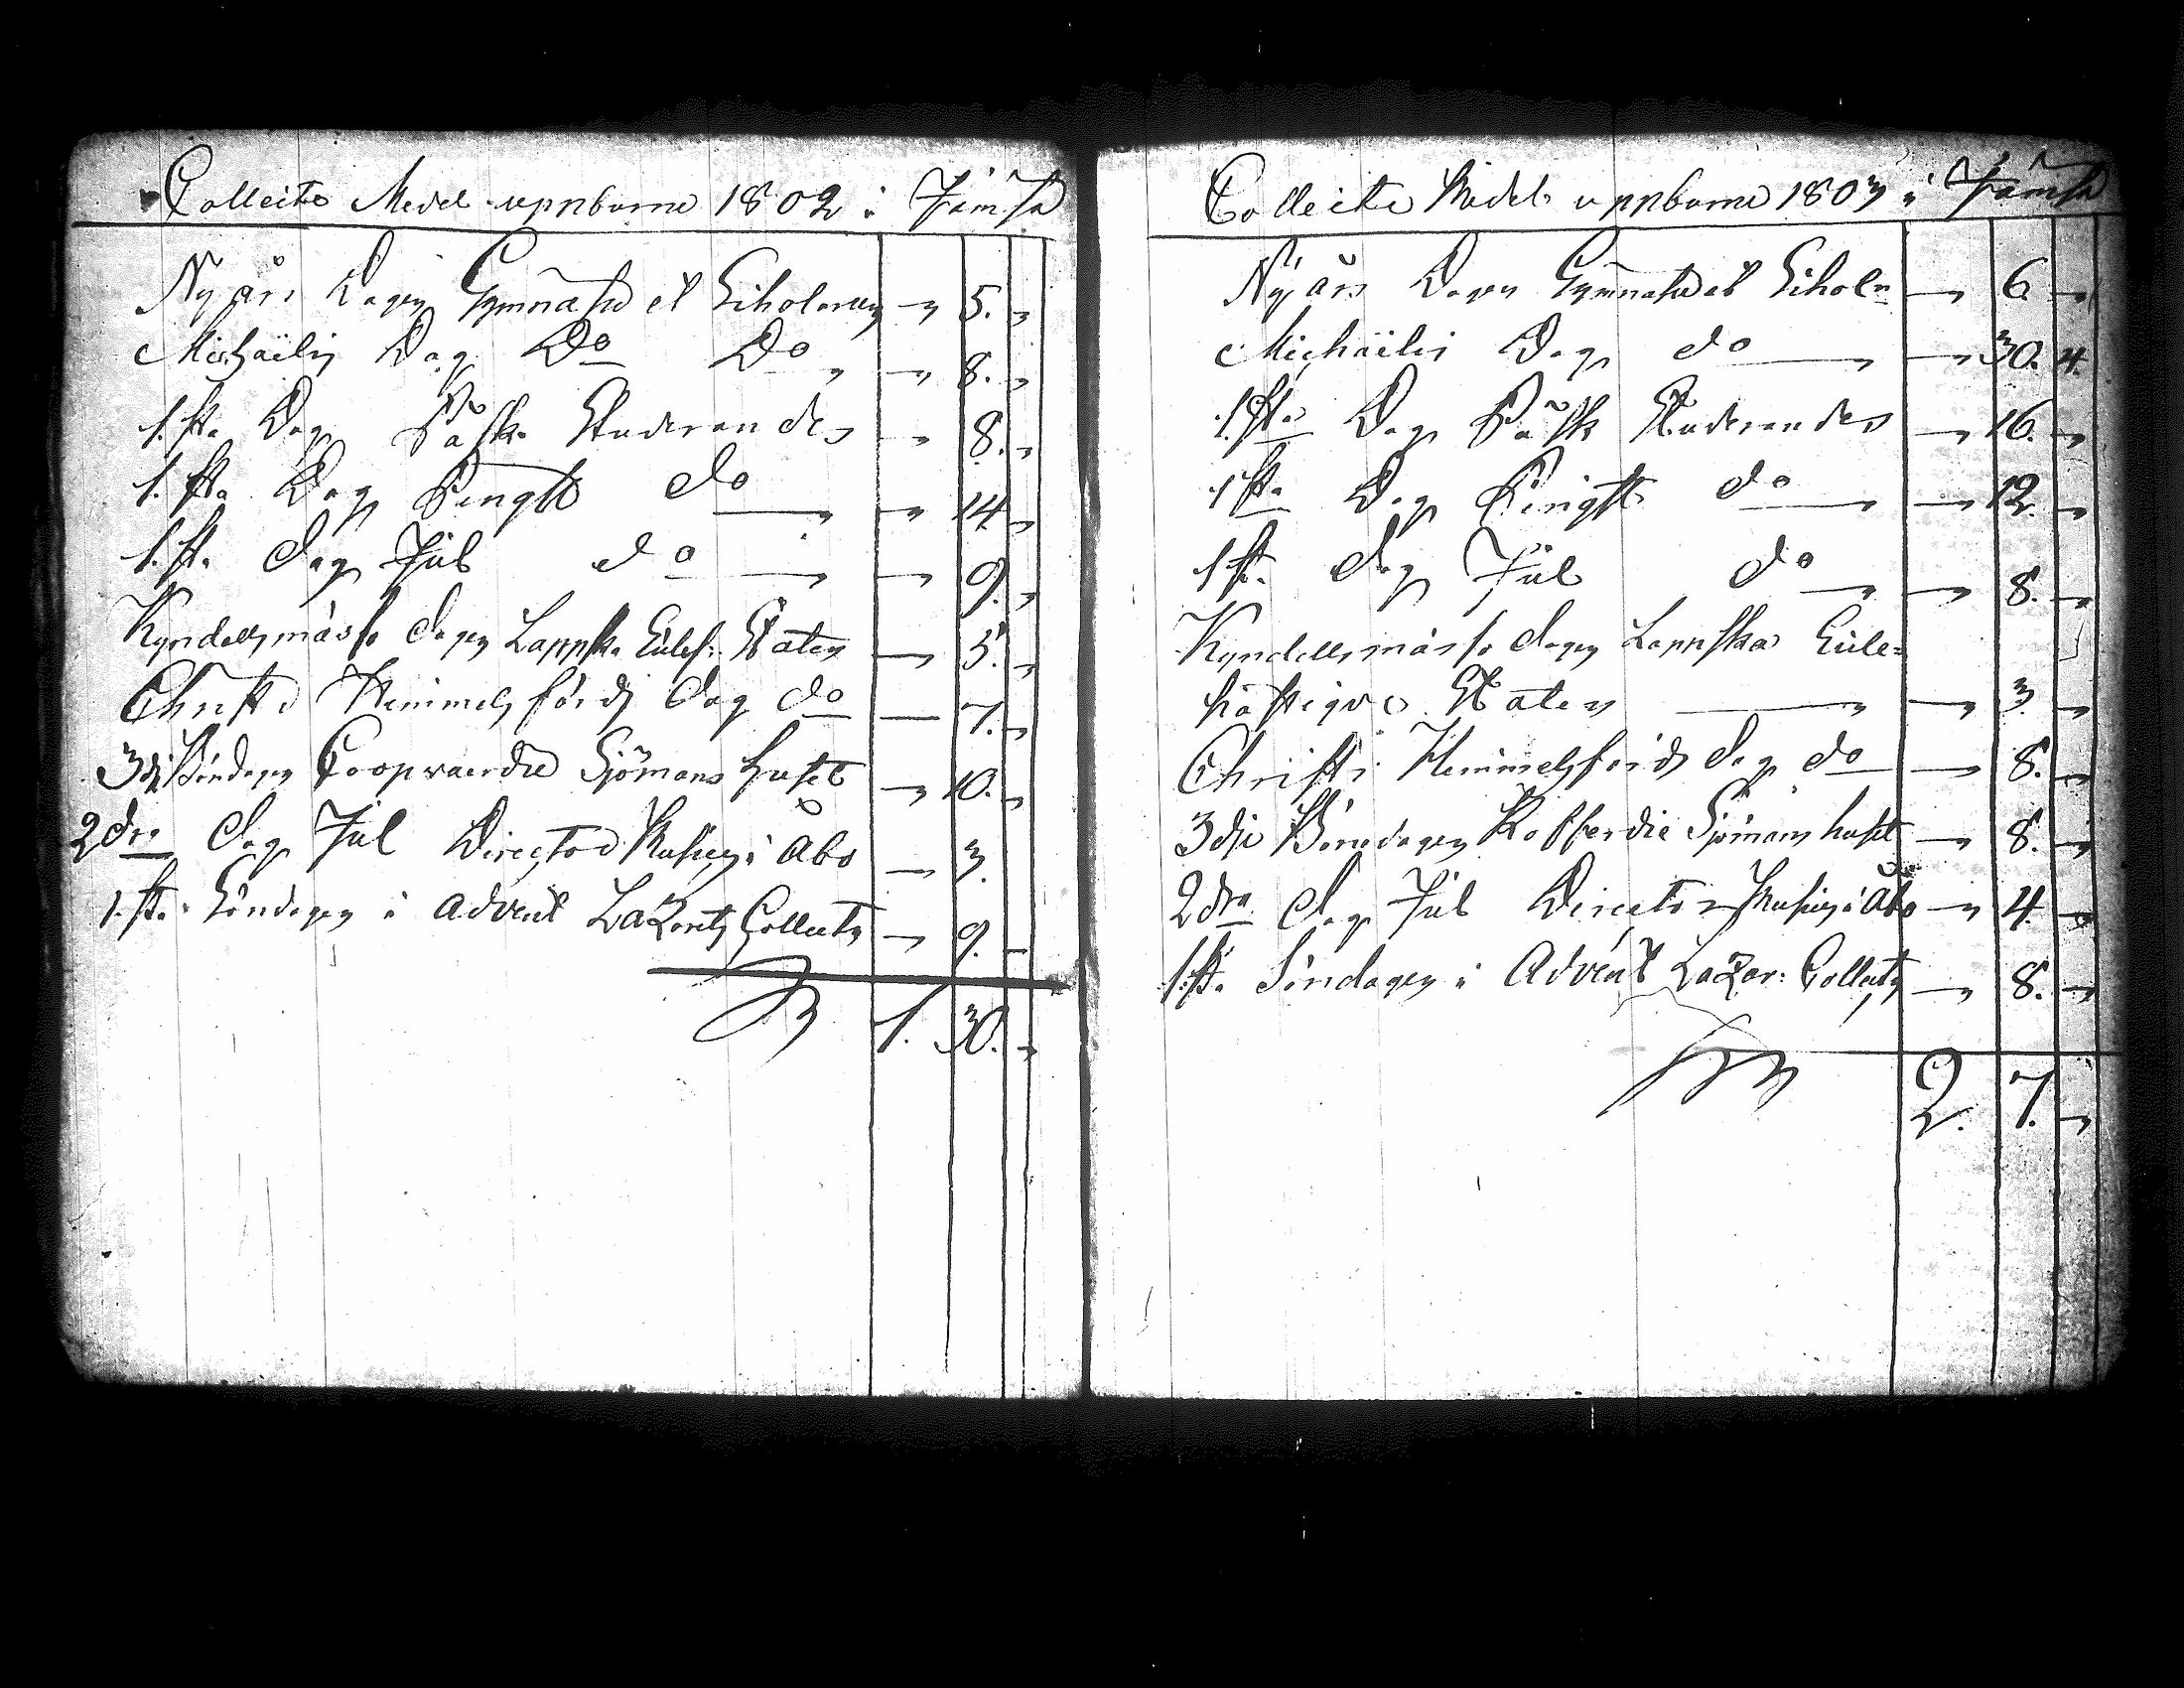 Collecte Medel uppburne 1802 i Jämsä
Nyårs Dagen Gymnasii et Scholarum " 5. "
Michaëlis Dag Do Do " " 8. "
1.sta Dag Påsk Studerandes " 8. "
1.sta Dag Pingst do " 14 "
1.sta dag Jul do " 9. "
Kyndelsmässo dagen Lappska Eccles: Staten " 5. "
Christi Himmelsfärds dag do — 7. "
3dje Böndagen Coopvaerdie Sjömans huset " 10. "
2dra dag Jul Director Rusen i Åbo " 3.
1.sta Söndagen i Advent Lazarets Collecten " 9. "
1. 30. "
Collecte Medel uppburne 1803 i Jämsä
Nyårs Dagen Gymnasii et Schol: " 6. "
Michaëlis Dag do " " 30. 4.
1.sta Dag Påsk Studerandes " 16. "
1sta Dag Pingst do " " 12. "
1sta dag Jul do " " 8. "
Kyndelsmässo dagen Lappska Eccle=
siastique Staten " " 3. "
Christi Himmelsfärds dag do " 8. "
3dje Böndagen Kofferdie Sjömans huset " 8. "
2dra dag Jul Director Rusen i Åbo " 4. "
1.sta Söndagen i Advent Lazar: Collecten " 8. "
2. 7. "